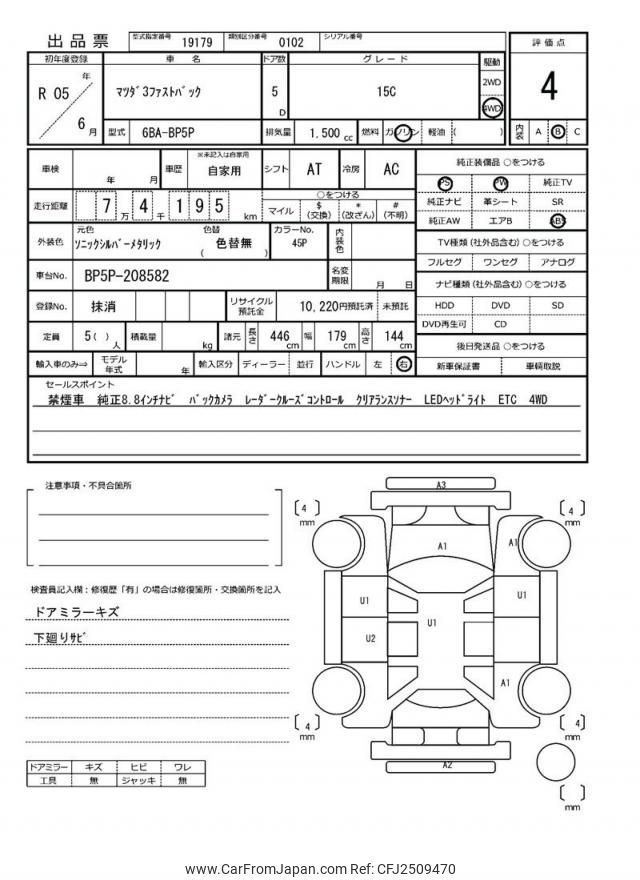 出品票
型式指定番号 19179 類別区分番号 0102 シリアル番号
初年度登録 車名 ドア数 グレード 駆動 評価点
R 05 年 6 月
マツダ3ファストバック 5 D 15C
2WD
4WD
4
型式 6BA-BP5P 排気量 1.500 cc 燃料 ガソリン 軽油 ( ) 内装 A B C
車検 年 月 車歴 ※未記入は自家用 自家用 シフト AT 冷房 AC
走行距離 7 万 4 千 195 km
○をつける
マイル $ (交換) * (改ざん) # (不明)
外装色 元色 ソニックシルバーメタリック 色替 ( 色替無 ) カラーNo. 45P 内装色
車台No. BP5P-208582 名変期限 月 日
登録No. 抹消 リサイクル預託金 10,220円預託済 未預託
定員 5 ( ) 人 積載量 kg 諸元 長さ 446 cm 幅 179 cm 高さ 144 cm
輸入車のみ⇒ モデル年式 年 輸入区分 ディーラー 並行 ハンドル 左 右
純正装備品 ○をつける
PS PW 純正TV
純正ナビ 革シート SR
純正AW エアB ABS
TV種類 (社外品含む) ○をつける
フルセグ ワンセグ アナログ
ナビ種類 (社外品含む) ○をつける
HDD DVD SD
DVD再生可 CD
後日発送品 ○をつける
新車保証書 車輌取説
セールスポイント
禁煙車 純正8.8インチナビ バックカメラ レーダークルーズコントロール クリアランスソナー LEDヘッドライト ETC 4WD
注意事項・不具合箇所
検査員記入欄:修復歴「有」の場合は修復箇所・交換箇所を記入
ドアミラーキズ
下廻りサビ
ドアミラー キズ ヒビ ワレ
工具 無 ジャッキ 無
A3
[ 4 ] mm
[ 4 ] mm
A1
A1
U1
U1
U2
A1
[ 4 ] mm
[ 4 ] mm
A2
[ ] mm
www.CarFromJapan.com Ref: CFJ2509470